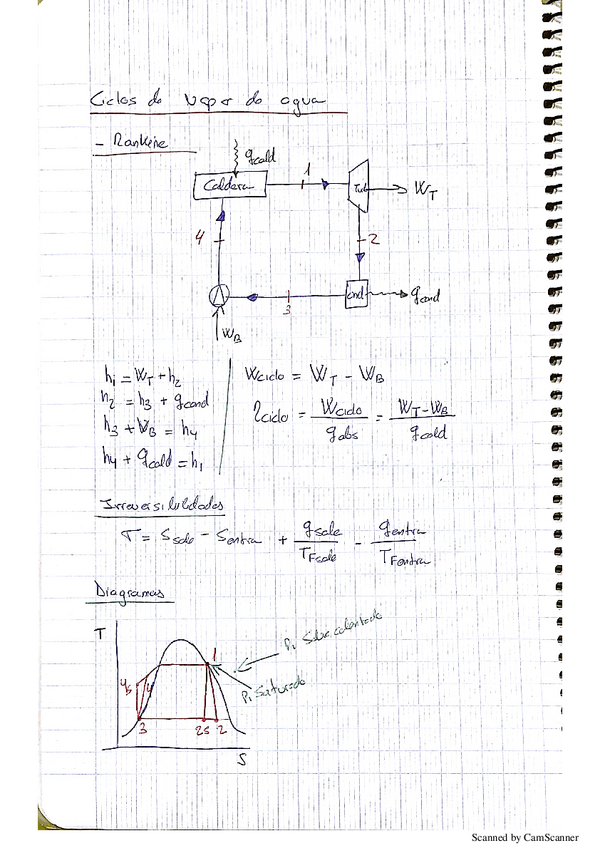 Ciclos de vapor de agua
- Rankine
qcald
Caldera
1
Turb
WT
4
2
3
Cond
qcond
WB
h1 = WT + h2
h2 = h3 + qcond
h3 + WB = h4
h4 + qcald = h1
Wciclo = WT - WB
ηciclo = Wciclo / qabs = WT - WB / qcald
Irreversibilidades
σ = Ssale - Sentra + qsale / TFsale - qentra / TFentra
Diagramas
T
1
P1 Sobrecalentado
P1 Saturado
4s
4
3
2s
2
S
Scanned by CamScanner